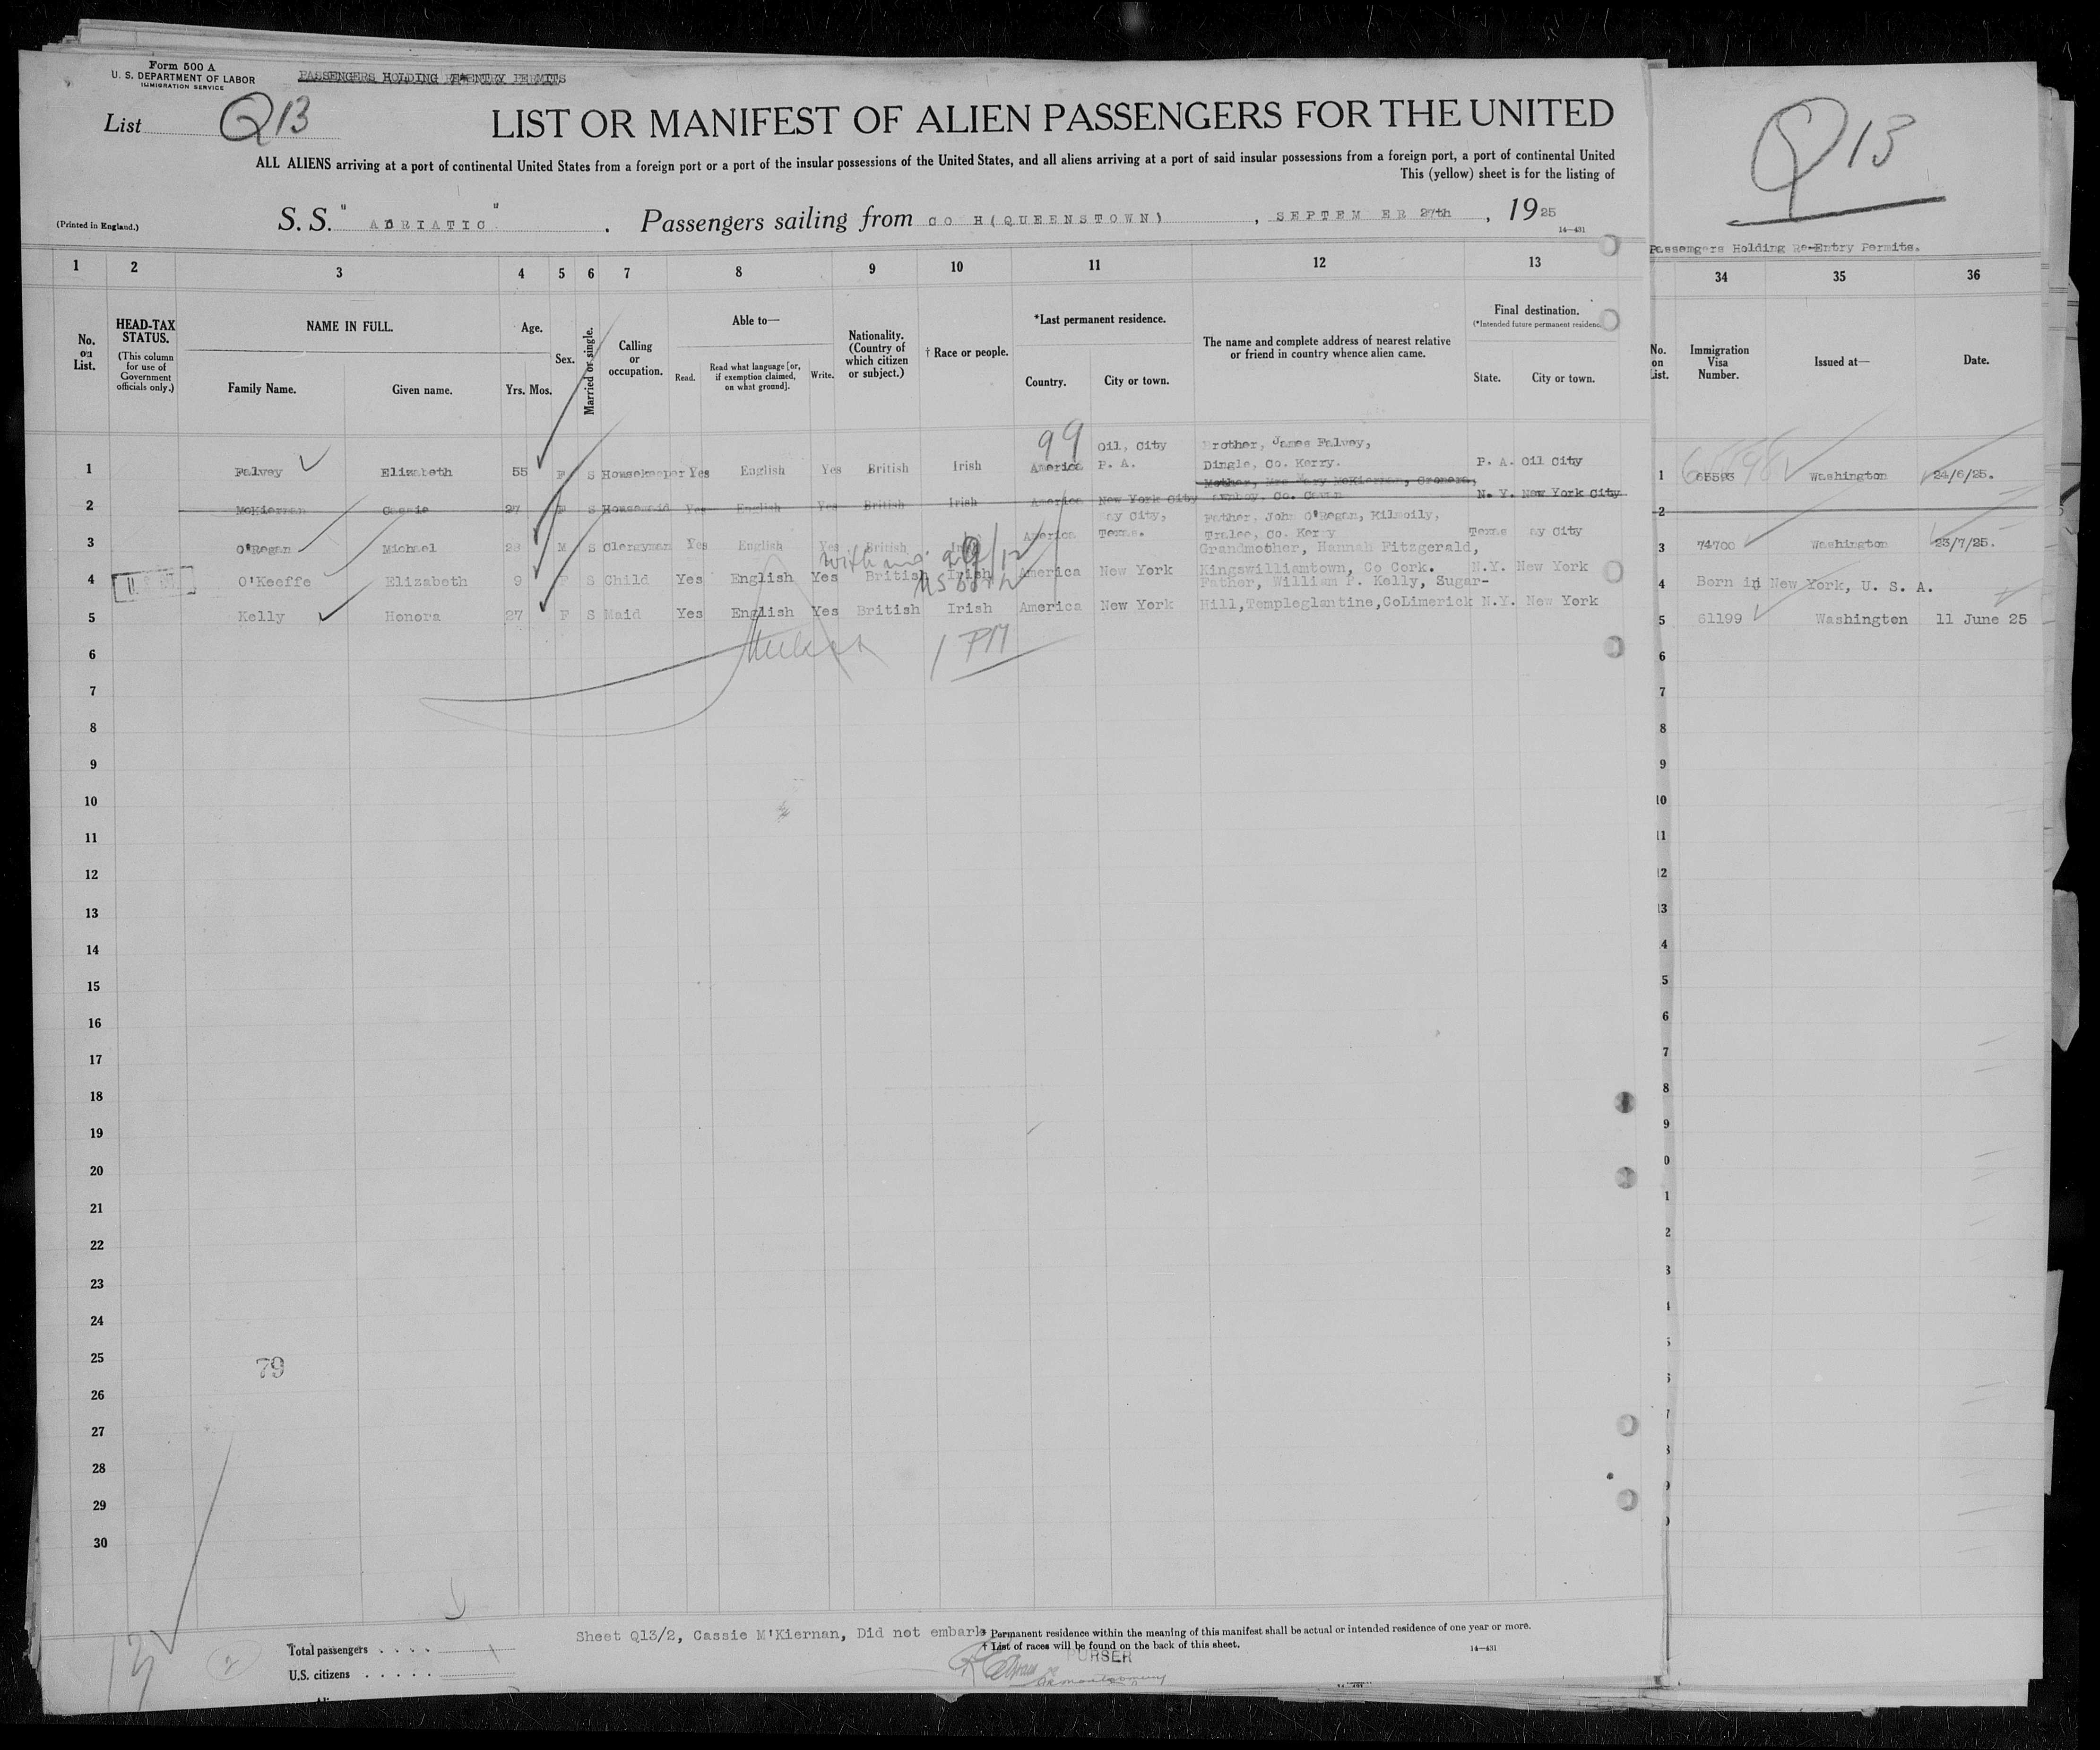 Form 500 A
U. S. DEPARTMENT OF LABOR
IMMIGRATION SERVICE
PASSENGERS HOLDING RE-ENTRY PERMITS
List Q13
LIST OR MANIFEST OF ALIEN PASSENGERS FOR THE UNITED
ALL ALIENS arriving at a port of continental United States from a foreign port or a port of the insular possessions of the United States, and all aliens arriving at a port of said insular possessions from a foreign port, a port of continental United
This (yellow) sheet is for the listing of
(Printed in England.)
S. S. "ADRIATIC". Passengers sailing from CO H(QUEENSTOWN), SEPTEM ER 27th, 1925
14—431
Q13
Passengers Holding Re-Entry Permits.
1 2 3 4 5 6 7 8 9 10 11 12 13 34 35 36
No. on List.
HEAD-TAX STATUS.
(This column for use of Government officials only.)
NAME IN FULL.
Family Name. Given name.
Age.
Yrs. Mos.
Sex.
Married or single.
Calling or occupation.
Able to—
Read. Read what language [or, if exemption claimed, on what ground]. Write.
Nationality. (Country of which citizen or subject.)
† Race or people.
*Last permanent residence.
Country. City or town.
The name and complete address of nearest relative or friend in country whence alien came.
Final destination.
(*Intended future permanent residence
State. City or town.
No. on List.
Immigration Visa Number.
Issued at—
Date.
99 Oil, City Brother, James Falvey,
1 Falvey Elizabeth 55 F S Housekeeper Yes English Yes British Irish America P. A. Dingle, Co. Kerry. P. A. Oil City 1 65593 Washington 24/6/25.
Mother, Mrs Mary McKiernan,
2 McKiernan Cassie 27 F S Housemaid Yes English Yes British Irish America New York City Co. Cavan N. Y. New York City 2
ay City, Father, John O'Regan, Kilmoily,
3 O'Regan Michael 28 M S Clergyman Yes English Yes British America Texas. Tralee, Co. Kerry Texas ay City 3 74700 Washington 23/7/25.
Grandmother, Hannah Fitzgerald,
4 O'Keeffe Elizabeth 9 F S Child Yes English Yes British Irish America New York Kingswilliamtown, Co Cork. N.Y. New York 4 Born in New York, U. S. A.
Father, William P. Kelly, Sugar-
5 Kelly Honora 27 F S Maid Yes English Yes British Irish America New York Hill,Templeglantine,CoLimerick N.Y. New York 5 61199 Washington 11 June 25
1 PM
6 6
7 7
8 8
9 9
10 10
11 11
12 12
13 13
14 4
15 5
16 6
17 7
18 8
19 9
20 0
21 1
22 2
23 3
24
25
79
26
27
28
29
30
Sheet Q13/2, Cassie M'Kiernan, Did not embark
* Permanent residence within the meaning of this manifest shall be actual or intended residence of one year or more.
† List of races will be found on the back of this sheet.
14—431
PURSER
Total passengers
U.S. citizens